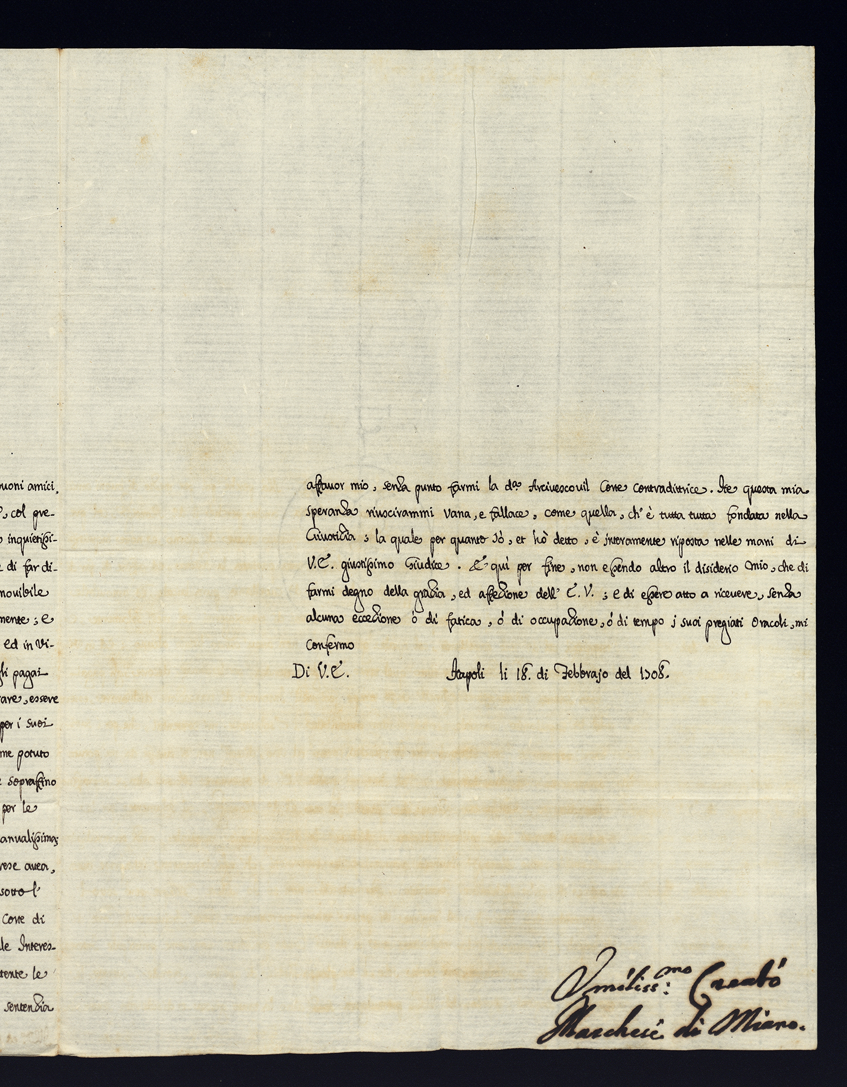 uoni amici,
, col pre-
inquietissi-
di far di-
movibile
mente; E
ed in Vi-
gli pagai
rare, essere
per i suoi
me potuto
soprafino
per le
anualissimo;
rese avea,
sotto l'
Corte di
le Interes-
tente le
sentenzia
affavor mio, senza punto farmi la d.ª Arcivescovil Corte contradittrice. Ne questa mia
speranza riuscirammi vana, e fallace, come quella, ch' è tutta tutta fondata nella
Giustizia; la quale per quanto sò, et hò detto, è interamente riposta nelle mani di
V.E. giustissimo Giudice. E quì per fine, non essendo altro il disiderio mio, che di
farmi degno della grazia, ed affezione dell' E.V.; e di essere atto a ricevere, senza
alcuna eccezione ò di fatica, ò di occupazione, ò di tempo j suoi pregiati Oracoli, mi
Confermo
Di V.E. Napoli li 18. di Febbrajo del 1708.
Vmiliss:mo Creato
Marchese di Miano.